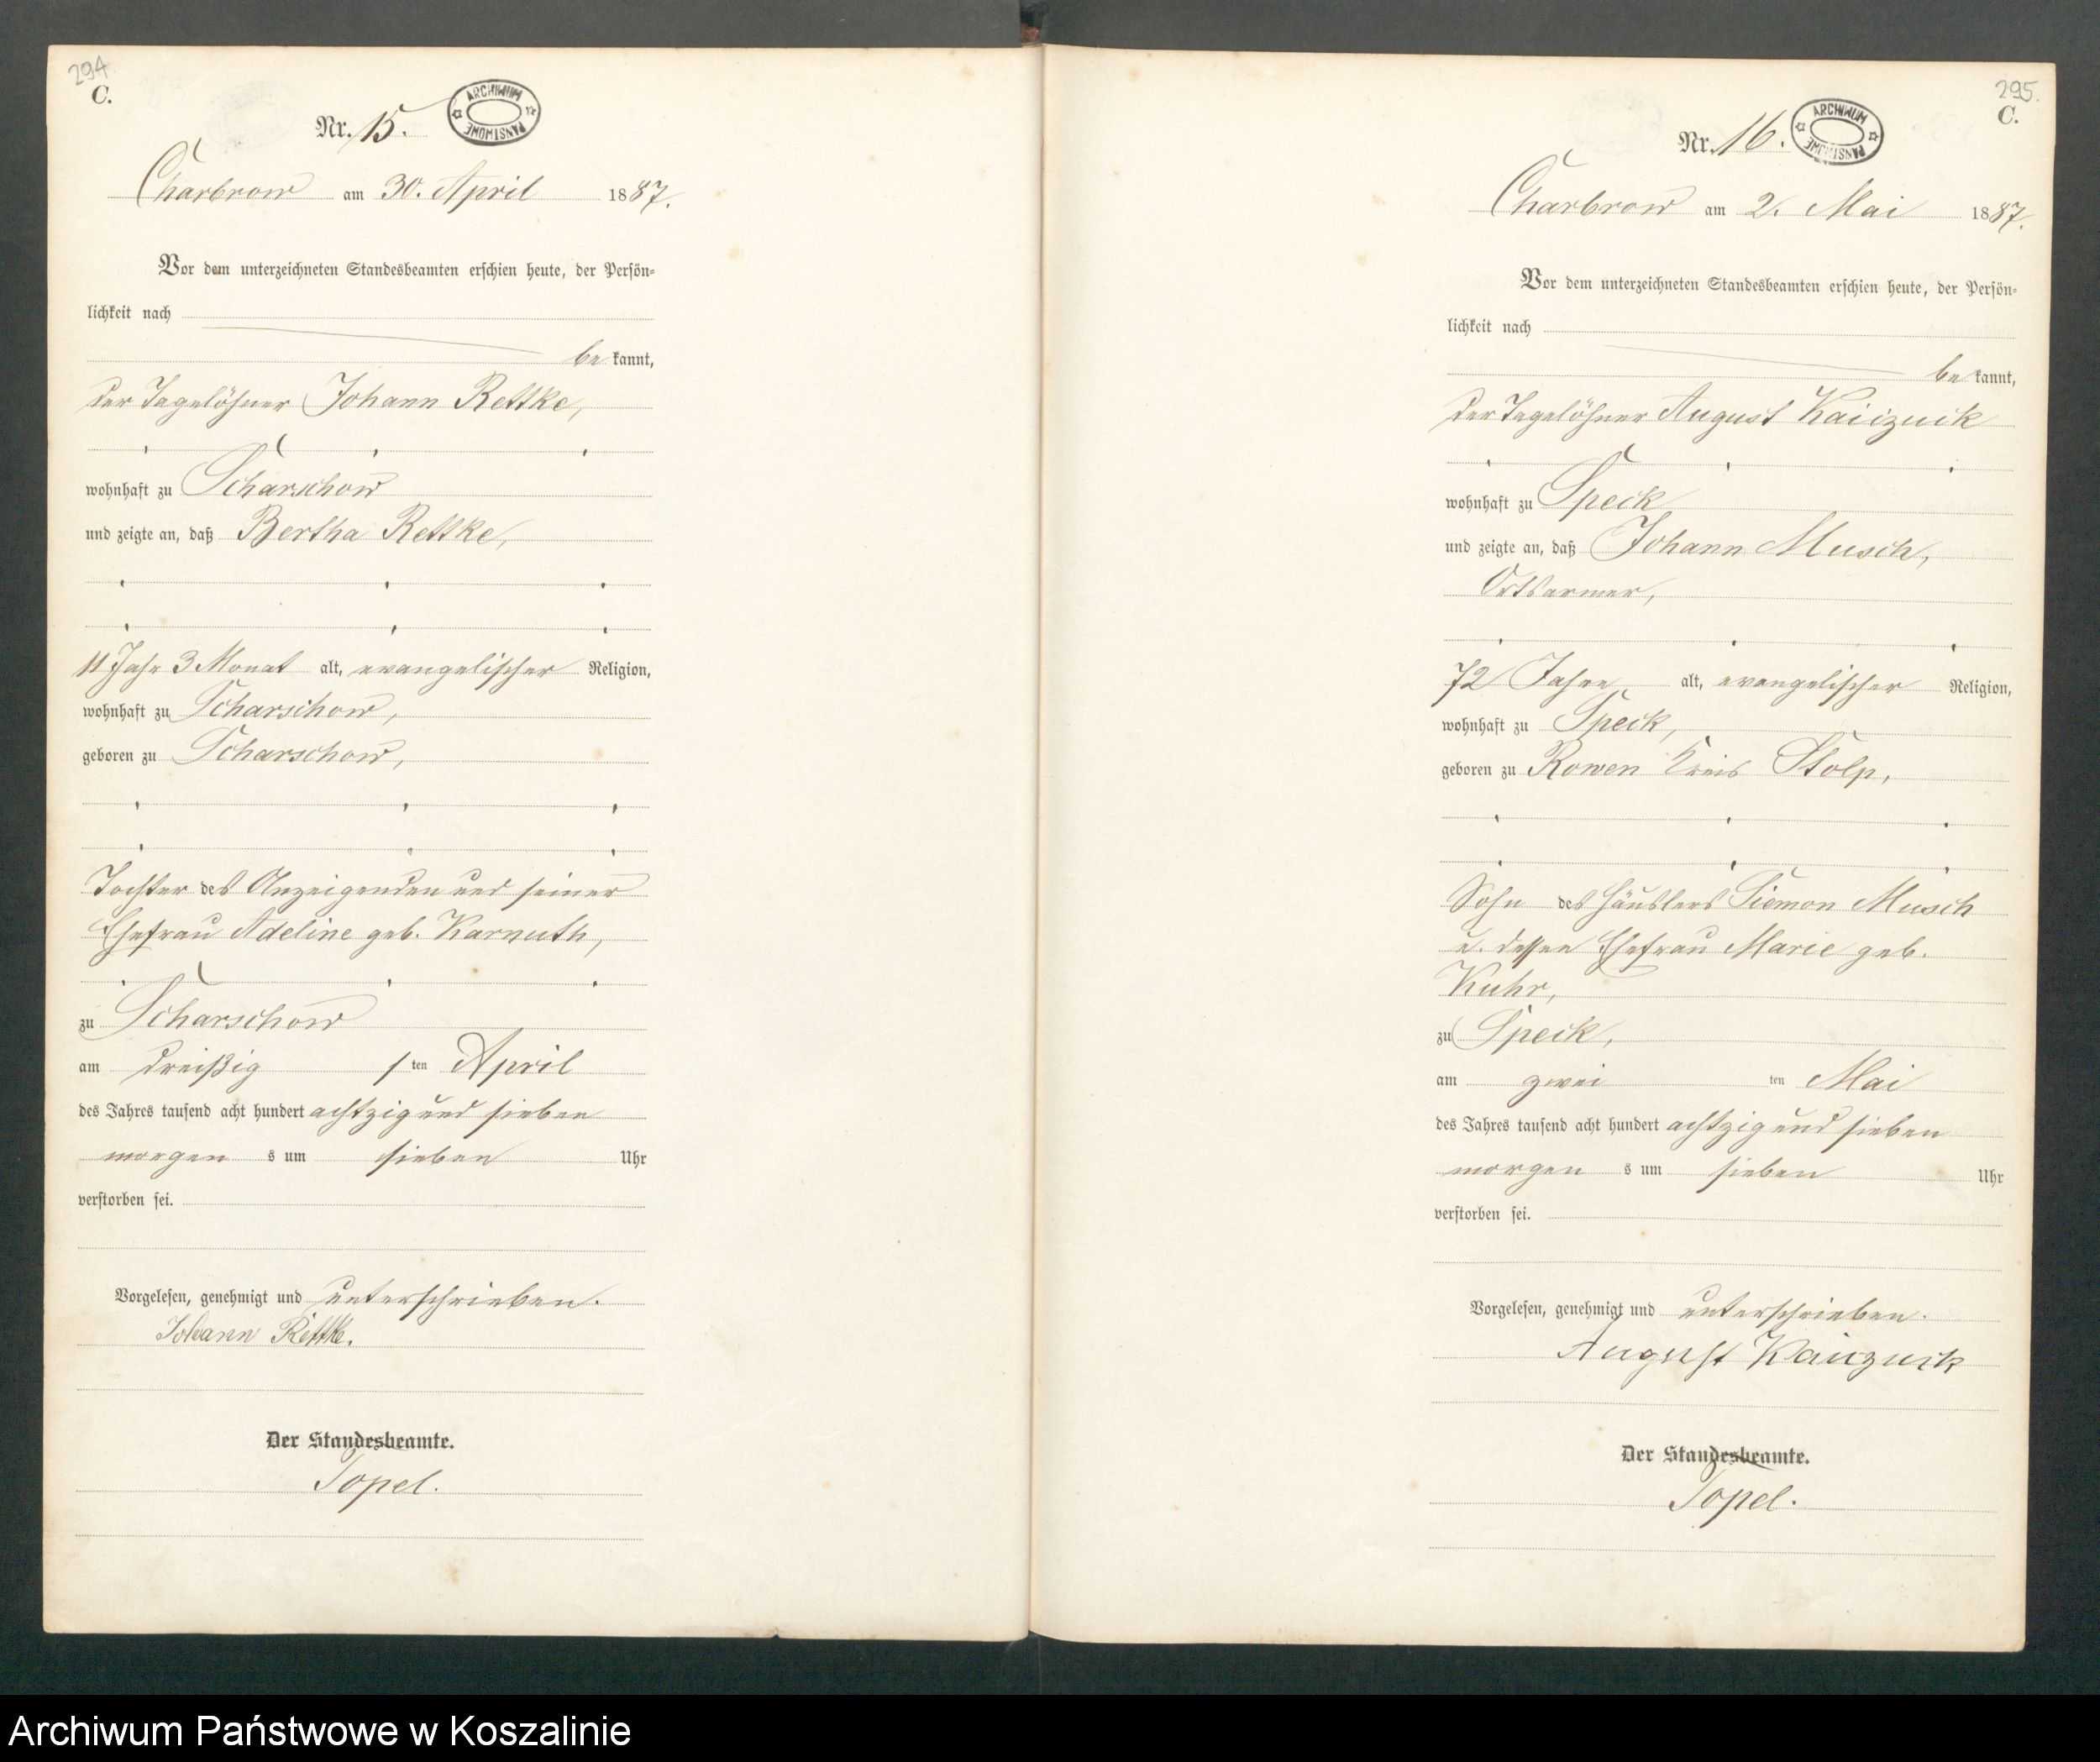 294
C.
Nr. 15.
ARCHIWUM PAŃSTWOWE
Charbrow am 30. April 1887.
Vor dem unterzeichneten Standesbeamten erschien heute, der Persön-
lichkeit nach
be kannt,
der Tagelöhner Johann Rettke,
wohnhaft zu Scharschow
und zeigte an, daß Bertha Rettke,
11 Jahr 3 Monat alt, evangelischer Religion,
wohnhaft zu Scharschow,
geboren zu Scharschow,
Tochter des Anzeigenden und seiner
Ehefrau Adeline geb. Karnuth,
zu Scharschow
am dreißig ten April
des Jahres tausend acht hundert achtzig und sieben
morgen s um sieben Uhr
verstorben sei.
Vorgelesen, genehmigt und unterschrieben.
Johann Rettke.
Der Standesbeamte.
Topel.
295.
C.
Nr. 16.
ARCHIWUM PAŃSTWOWE
Charbrow am 2. Mai 1887.
Vor dem unterzeichneten Standesbeamten erschien heute, der Persön-
lichkeit nach
be kannt,
der Tagelöhner August
wohnhaft zu Speck
und zeigte an, daß Johann Musch,
Ortsarmer,
72 Jahre alt, evangelischer Religion,
wohnhaft zu Speck,
geboren zu Rowen Kreis Stolp,
Sohn des Häuslers Siemon Musch
u. dessen Ehefrau Marie geb.
Kuhr,
zu Speck,
am zwei ten Mai
des Jahres tausend acht hundert achtzig und sieben
morgen s um sieben Uhr
verstorben sei.
Vorgelesen, genehmigt und unterschrieben.
August
Der Standesbeamte.
Topel.
Archiwum Państwowe w Koszalinie